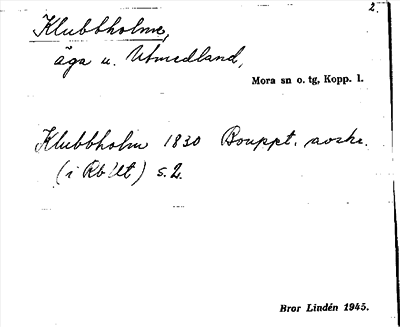 2.
Klubbholme,
äga u. Utmedland,
Mora sn o. tg, Kopp. l.
Klubbholm 1830 Bouppt. avskr.
(i Rb Ut) s. 2.
Bror Lindén 1945.